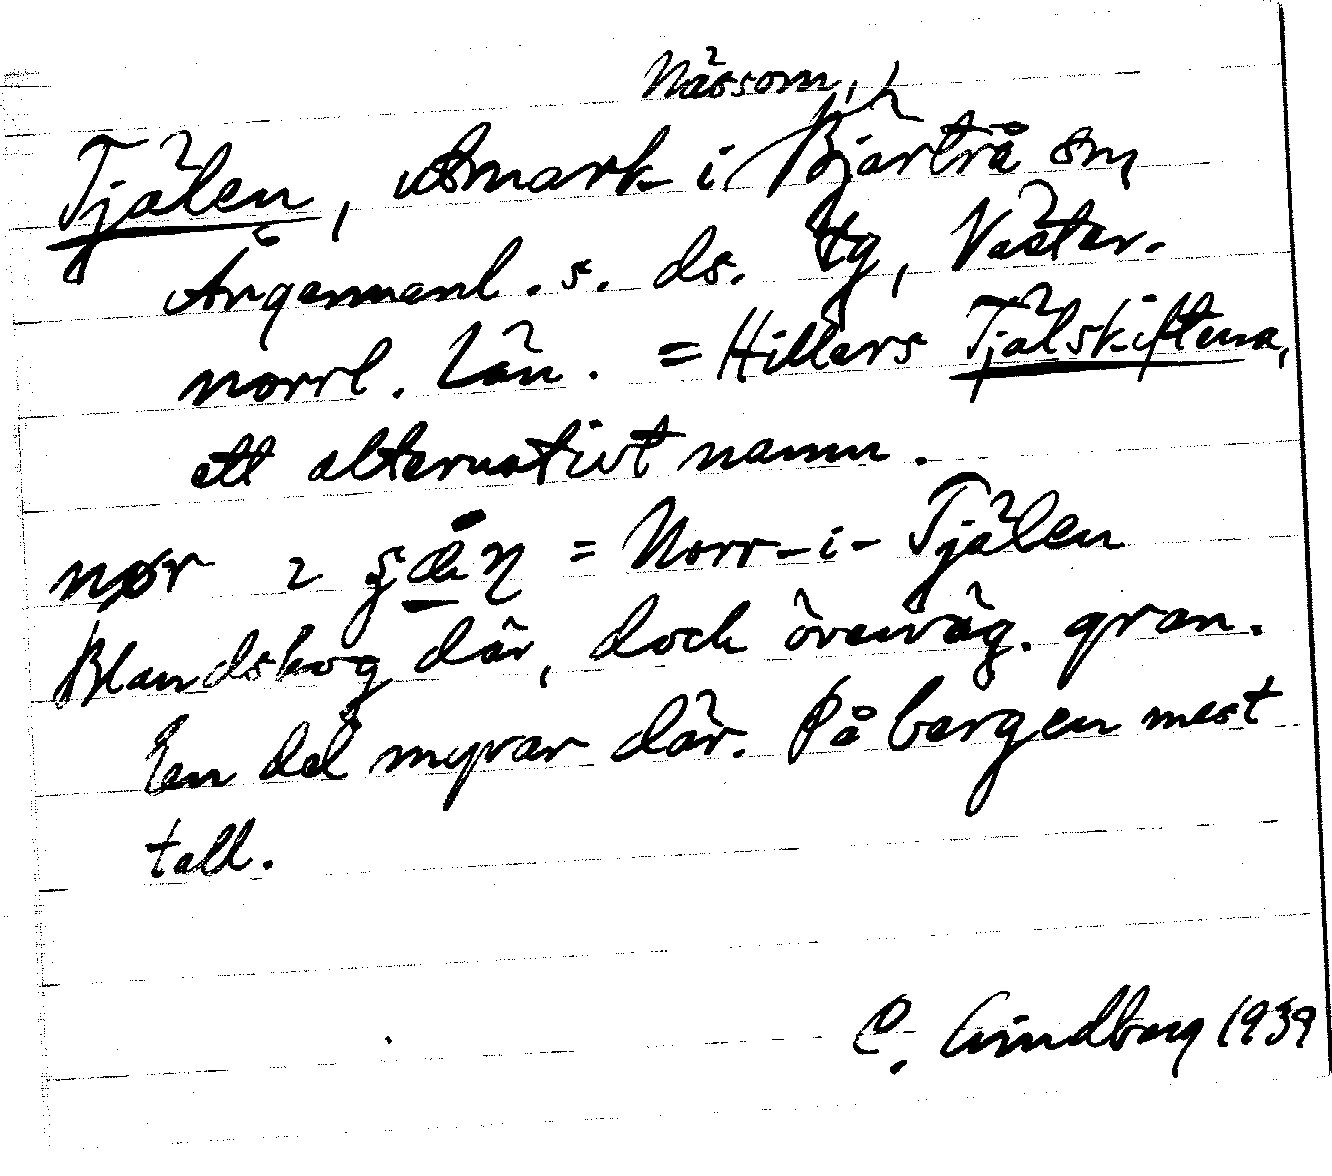 Nässom,
Tjälen, utmark i Bjärtrå sn,
Ångermanl. s. ds. tg, Väster-
norrl. län. = Hillers Tjälskiftena,
ett alternativt namn.
nør = Norr-i-Tjälen
Blandskog där, doch överväg. gran.
En del myrar där. På bergen mest
tall.
C. Lindberg 1939